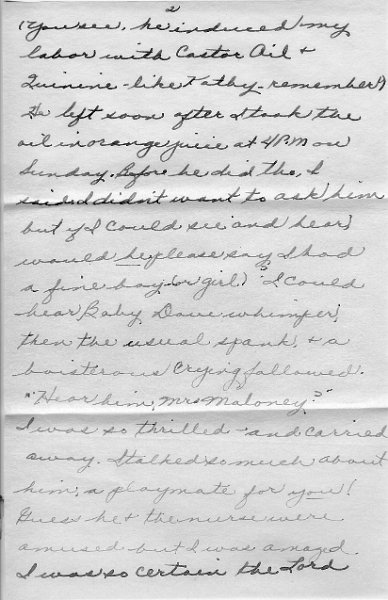 2
(You see, he induced my
labor with Castor Oil +
Quinine - like Kathy - remember?)
He left soon after I took the
oil in orange juice at 4 P.M on
Sunday. Before he did tho, I
said I didn't want to ask him
but if I could see and hear,
would he please say I had
a fine boy (or girl)? I could
hear Baby Dave whimper,
then the usual spank, + a
boisterous crying followed.
"Hear him, Mrs Maloney?"
I was so thrilled and carried
away. I talked so much about
him, a playmate for you!
Guess he + the nurse were
amused but I was amazed.
I was so certain the Lord